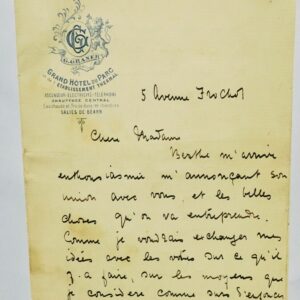 G
G. GRANER
GRAND HÔTEL DU PARC
ÉTABLISSEMENT THERMAL
ASCENSEUR-ÉLECTRICITÉ-TÉLÉPHONE
CHAUFFAGE CENTRAL
Eau chaude et froide dans les chambres
SALIES DE BÉARN
5 Avenue Frochot
Chere Madame
Berthe m'arrive
enthousiasmée m'annonçant son
union avec vous, et les belles
choses qu'on va entreprendre.
Comme je voudrais exchanger mes
idées avec les vôtres sur ce qu'il
y a faire, sur les moyens que
je considere comme surs